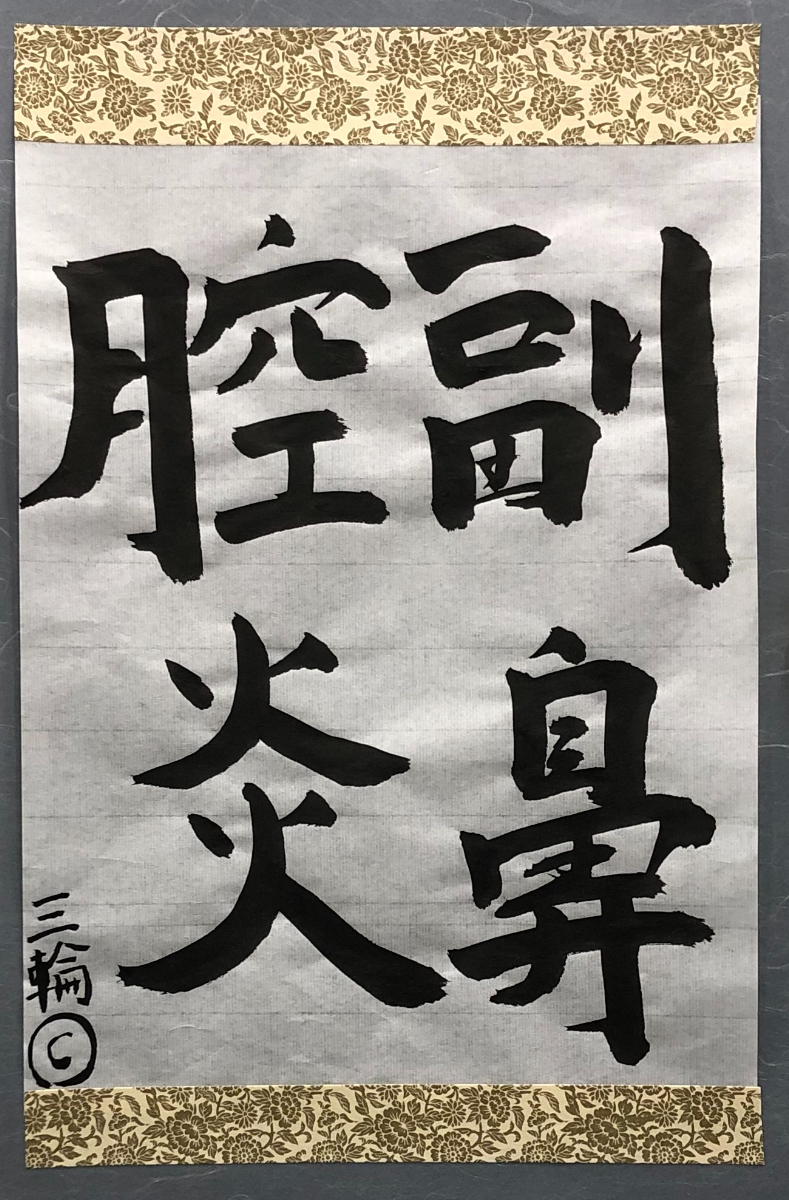 副鼻
腔炎
三輪
Ⓒ